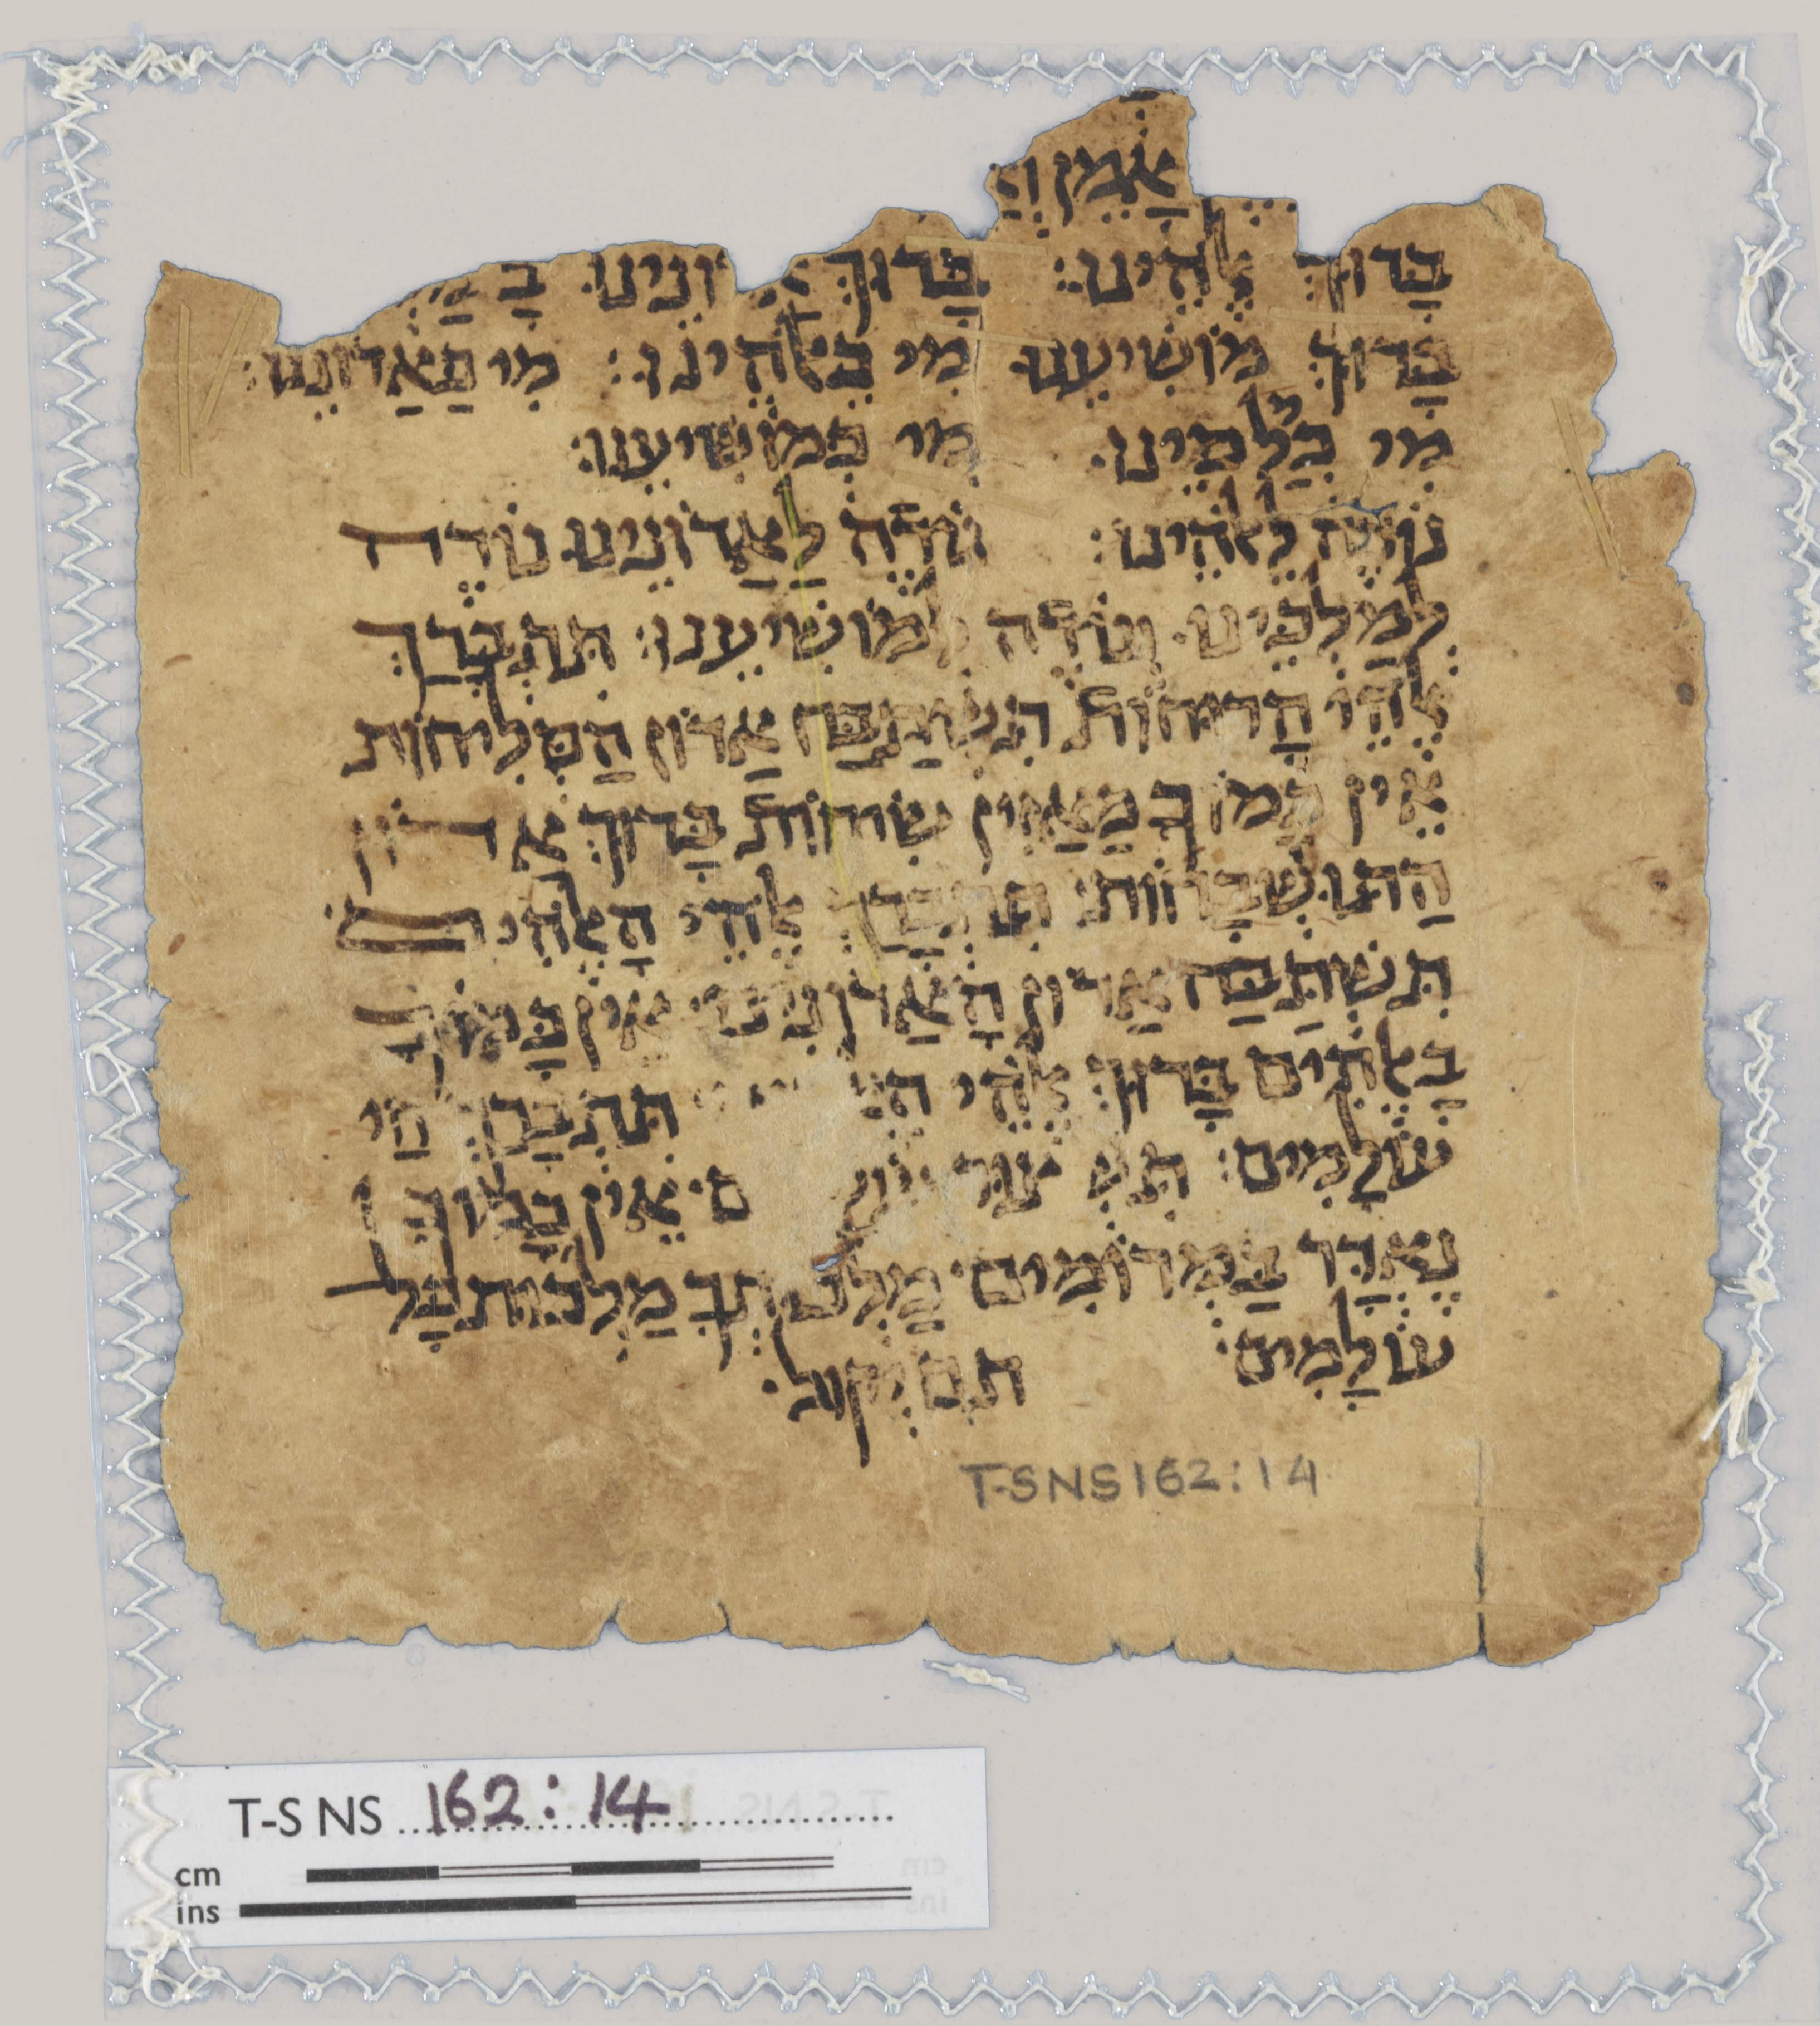 אָמֵן
בָּרוּךְ אֱלֹהֵינוּ: בָּרוּךְ אֲדוֹנֵינוּ:
בָּרוּךְ מוֹשִׁיעֵנוּ מִי כֵאלֹהֵינוּ: מִי כַאֲדוֹנֵנוּ:
מִי כְמַלְכֵּינוּ: מִי כְמוֹשִׁיעֵנוּ:
נוֹדֶה לֵאלֹהֵינוּ: נוֹדֶה לַאֲדוֹנֵינוּ נוֹדֶה
לְמַלְכֵּינוּ. נוֹדֶה לְמוֹשִׁיעֵנוּ: תִּתְבָּרַךְ
אֱלֹהֵי הָרוּחוֹת תִּשְׁתַּבַּח אֲדוֹן הַסְּלִיחוֹת
אֵין כָּמוֹךָ מַאֲזִין שִׂיחוֹת בָּרוּךְ אדון
הַתּוּשְׁבָּחוֹת: תִּתְבָּרַךְ אֱלֹהֵי הָאֱלֹהִים
תִּשְׁתַּבַּח אֲדוֹן הָאֲדוֹנִים אֵין כָּמוֹךָ
בָּאֱלֹהִים בָּרוּךְ אֱלֹהֵי תִּתְבָּרַךְ חֵי
עוֹלָמִים: אֵין כָּמוֹךָ
נֶאְדָּר בַּמְּרוֹמִים: מַלְכוּתְךָ מַלְכוּת כָּל
עוֹלָמִים:
T-S NS 162:14
T-S NS 162:14
cm
ins